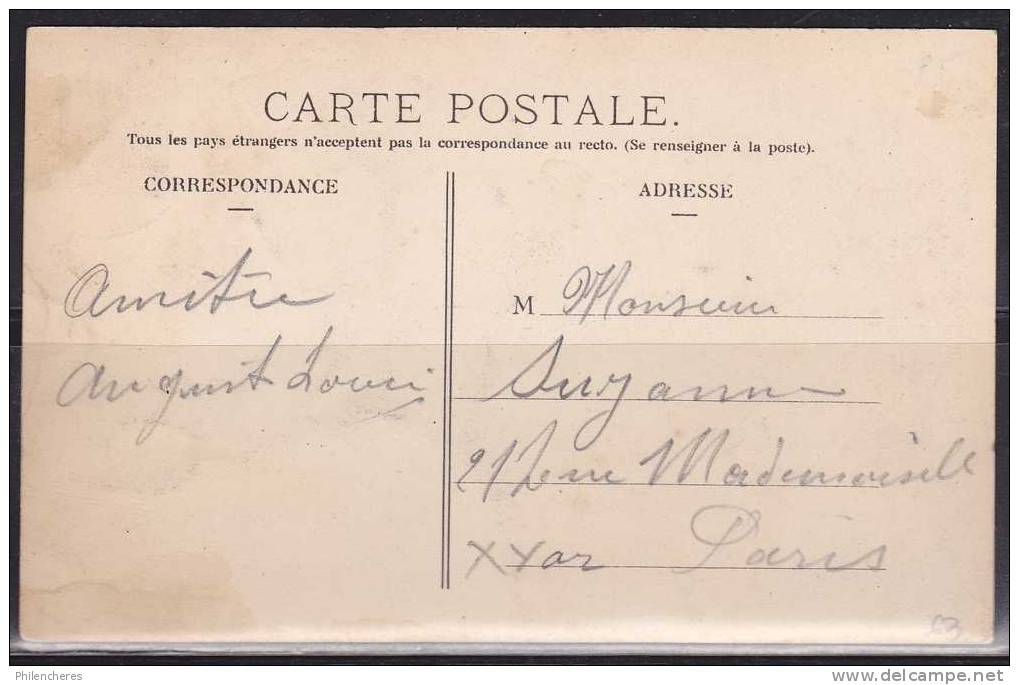 CARTE POSTALE.
Tous les pays étrangers n'acceptent pas la correspondance au recto. (Se renseigner à la poste).
CORRESPONDANCE
Amitie
August Louis
ADRESSE
M Monsieur
Suzanne
rue Mademoiselle
XV ar Paris
63
Philencheres
www.delcampe.net